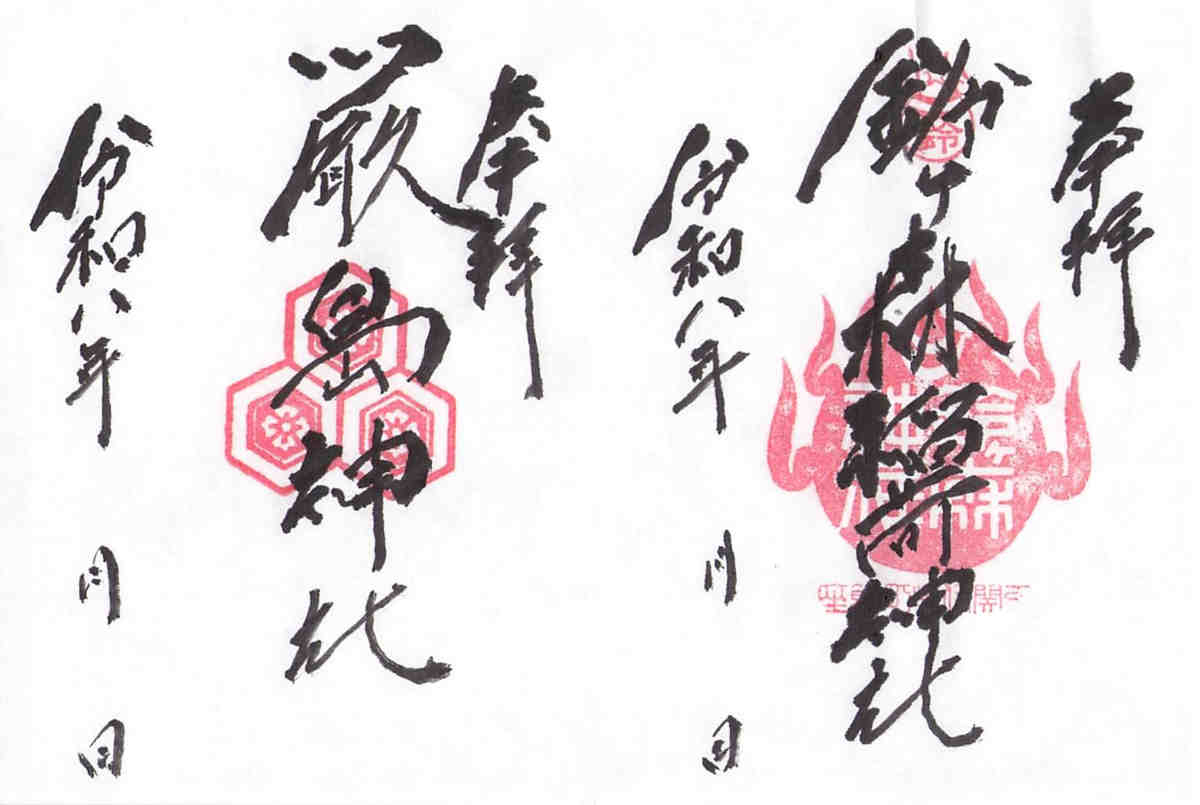 奉拝
鈴ヶ森稲荷神社
令和八年 月 日
奉拝
厳島神社
令和八年 月 日